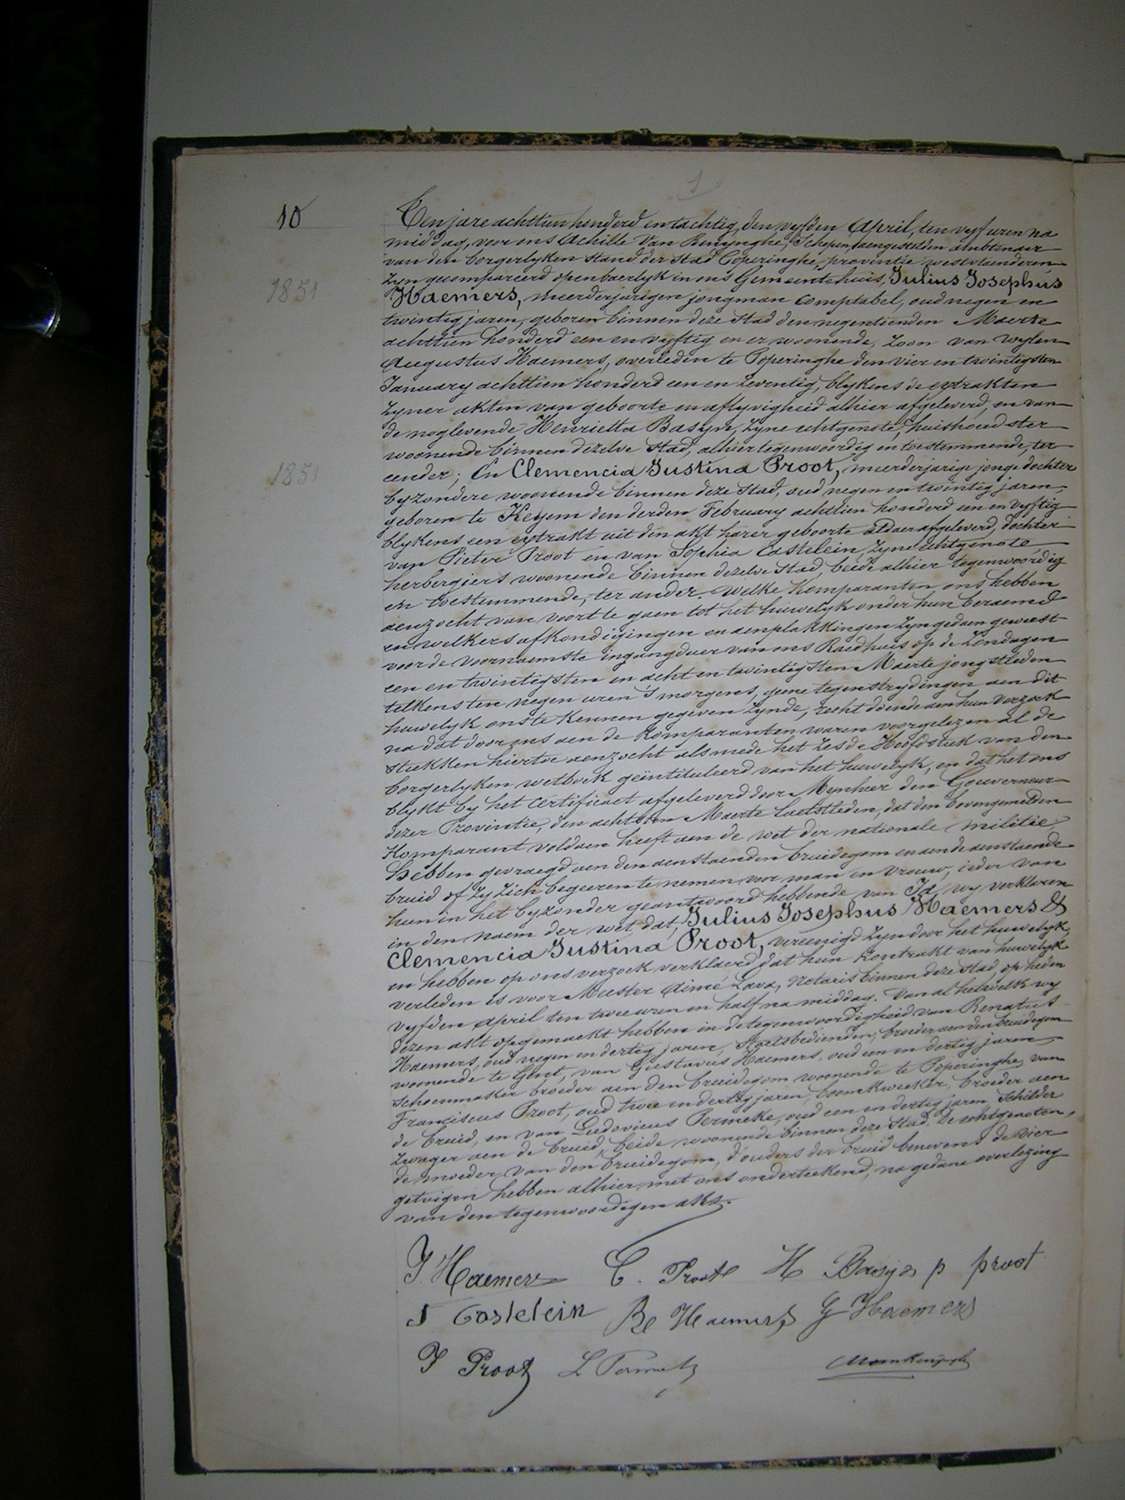 1
10
Ten jare achttien honderd en tachtig, den vyfden April, ten vyf uren na
middag, voor ons Achille Van Renynghe, Schepen, aengestelden ambtenaer
van den borgerlyken stand der Stad Poperinghe, provintie westvlaenderen
zyn gecompareerd openbaerlyk in ons Gemeentehuis, Julius Josephus
1851
Haemers, meerderjarigen jongman comptabel, oud negen en
twintig jaren, geboren binnen deze Stad den negentienden Maerte
achttien honderd een en vyftig en er woonende, zoon van wylen
Augustus Haemers, overleden te Poperinghe den vier en twintigsten
January achttien honderd een en zeventig, blykens de extrakten
zyner akten van geboorte en aflyvigheid alhier afgeleverd, en van
de noglevende Henrietta Basyn, zyne echtgenote, huishoudster
woonende binnen dezelve Stad, alhier tegenwoordig en toestemmende, ter
1851
eender; En Clemencia Justina Proot, meerderjarige jonge dochter
byzondere woonende binnen deze Stad, oud negen en twintig jaren,
geboren te Keyem den derden February achttien honderd een en vyftig
blykens een extrakt uit den akt harer geboorte aldaer afgeleverd, dochter
van Pieter Proot en van Sophia Castelein, zyne echtgenote
herbergiers woonende binnen dezelve Stad, beide alhier tegenwoordig
en toestemmende, ter ander. Welke Komparanten ons hebben
aenzocht van voort te gaen tot het huwelyk onder hun beraemd
en welkers afkondigingen en aenplakkingen zyn gedaen geweest
voor de voornaemste ingangdeur van ons Raedhuis op de zondagen
een en twintigsten en acht en twintigsten Maerte jongstleden
telkens ten negen uren 's morgens, geene tegenstrydingen aen dit
huwelyk ons te kennen gegeven zynde, recht doende aen hun verzoek
na dat door ons aen de Komparanten waren voorgelezen al de
stukken hiertoe aenzocht alsmede het zesde Hoofdstuk van den
borgerlyken wetboek geïntituleerd van het huwelyk, en dat het ons
blykt by het certificaet afgeleverd door Mynheer den Gouverneur
dezer Provintie, den achtsten Maerte laetstleden, dat den bovengemelden
Komparant voldaen heeft aen de wet der nationale militie
Hebben gevraegd aen den aenstaenden bruidegom en aen de aenstaende
bruid of zy zich begeeren te nemen voor man en vrouw, ieder van
hun in het byzonder geantwoord hebbende van Ja, wy verklaren
in den naem der wet dat Julius Josephus Haemers &
Clemencia Justina Proot, vereenigd zyn door het huwelyk,
en hebben op ons verzoek verklaerd dat hun kontrakt van huwelyk
verleden is voor Meester Aimé Lava, notaris binnen deze Stad, op heden
vyfden April ten twee uren en half na middag. Van al hetwelk wy
dezen akt opgemaekt hebben in de tegenwoordigheid van Renatus
Haemers, oud negen en dertig jaren, Staetsbedienden, broeder aen den bruidegom
woonende te Gent, van Gustavus Haemers, oud een en dertig jaren
schoenmaker broeder aen den bruidegom woonende te Poperinghe, van
Franciscus Proot, oud twee en dertig jaren, boomkweeker, broeder aen
de bruid, en van Ludovicus Permeke, oud een en dertig jaren, schilder
zwager aen de bruid, beide woonende binnen deze Stad. De echtgenoten,
de moeder van den bruidegom, d'ouders der bruid benevens de vier
getuigen hebben alhier met ons onderteekend, na gedane overlezing
van den tegenwoordigen akt.
J. Haemers C. Proot H Basyn p proot
S Castelein Re Haemers G Haemers
F Proot L Permeke